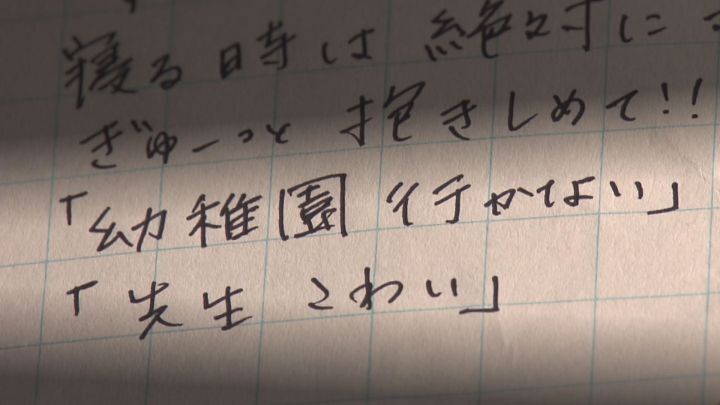 寝る時は絶対に
ぎゅーっと抱きしめて!!
「幼稚園行かない」
「先生こわい」